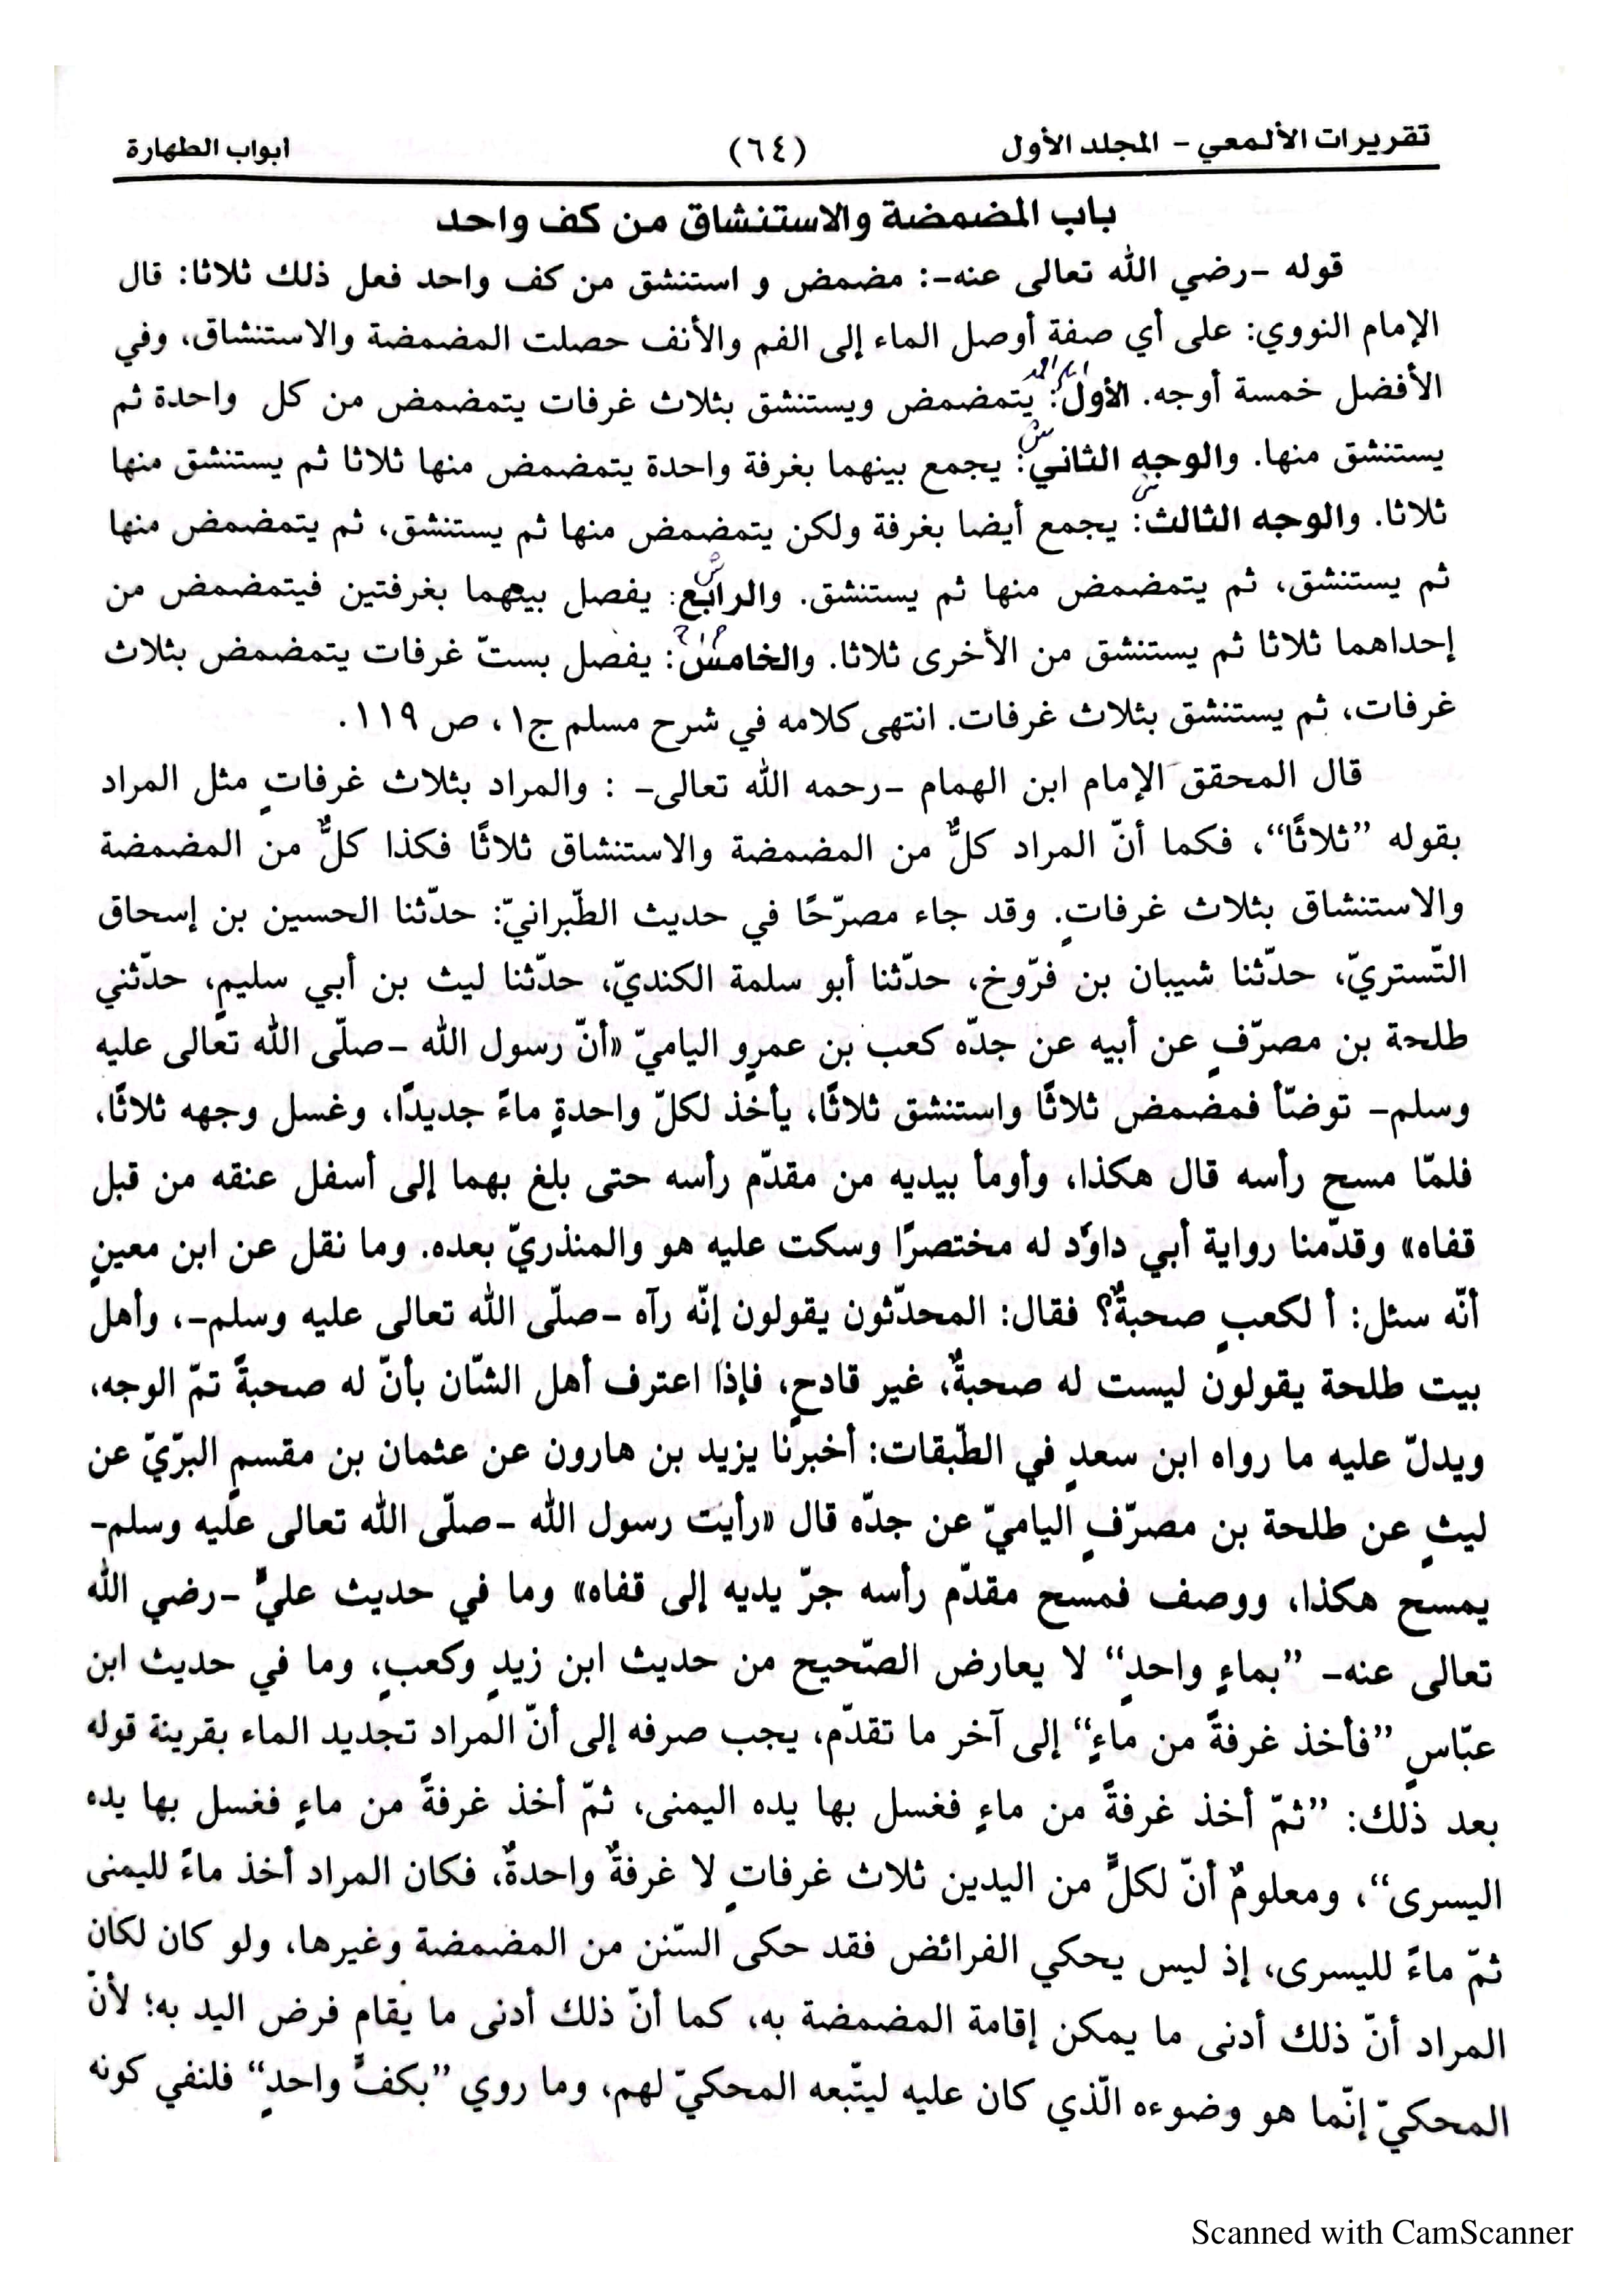 تقريرات الألمعي – المجلد الأول (٦٤) ابواب الطهارة
باب المضمضة والاستنشاق من كف واحد
قوله –رضي الله تعالى عنه–: مضمض و استنشق من كف واحد فعل ذلك ثلاثا: قال
الإمام النووي: على أي صفة أوصل الماء إلى الفم والأنف حصلت المضمضة والاستنشاق، وفي
الأفضل خمسة أوجه. الأول: يتمضمض ويستنشق بثلاث غرفات يتمضمض من كل واحدة ثم
يستنشق منها. والوجه الثاني: يجمع بينهما بغرفة واحدة يتمضمض منها ثلاثا ثم يستنشق منها
ثلاثا. والوجه الثالث: يجمع أيضا بغرفة ولكن يتمضمض منها ثم يستنشق، ثم يتمضمض منها
ثم يستنشق، ثم يتمضمض منها ثم يستنشق. والرابع: يفصل بينهما بغرفتين فيتمضمض من
إحداهما ثلاثا ثم يستنشق من الأخرى ثلاثا. والخامس: يفصل بستّ غرفات يتمضمض بثلاث
غرفات، ثم يستنشق بثلاث غرفات. انتهى كلامه في شرح مسلم ج١، ص ١١٩.
قال المحقق الإمام ابن الهمام –رحمه الله تعالى– : والمراد بثلاث غرفاتٍ مثل المراد
بقوله ”ثلاثًا“، فكما أنّ المراد كلٌّ من المضمضة والاستنشاق ثلاثًا فكذا كلٌّ من المضمضة
والاستنشاق بثلاث غرفاتٍ. وقد جاء مصرّحًا في حديث الطّبرانيّ: حدّثنا الحسين بن إسحاق
التّستريّ، حدّثنا شيبان بن فرّوخ، حدّثنا أبو سلمة الكنديّ، حدّثنا ليث بن أبي سليمٍ، حدّثني
طلحة بن مصرّفٍ عن أبيه عن جدّه كعب بن عمرٍو الياميّ «أنّ رسول الله –صلّى الله تعالى عليه
وسلم– توضّأ فمضمض ثلاثًا واستنشق ثلاثًا، يأخذ لكلّ واحدةٍ ماءً جديدًا، وغسل وجهه ثلاثًا،
فلمّا مسح رأسه قال هكذا، وأومأ بيديه من مقدّم رأسه حتى بلغ بهما إلى أسفل عنقه من قبل
قفاه» وقدّمنا رواية أبي داوٗد له مختصرًا وسكت عليه هو والمنذريّ بعده. وما نقل عن ابن معينٍ
أنّه سئل: أ لكعبٍ صحبةٌ؟ فقال: المحدّثون يقولون إنّه رآه –صلّى الله تعالى عليه وسلم–، وأهل
بيت طلحة يقولون ليست له صحبةٌ، غير قادحٍ، فإذا اعترف أهل الشّان بأنّ له صحبةً تمّ الوجه،
ويدلّ عليه ما رواه ابن سعدٍ في الطّبقات: أخبرنا يزيد بن هارون عن عثمان بن مقسمٍ البرّيّ عن
ليثٍ عن طلحة بن مصرّفٍ الياميّ عن جدّه قال «رأيت رسول الله –صلّى الله تعالى عليه وسلم–
يمسح هكذا، ووصف فمسح مقدّم رأسه جرّ يديه إلى قفاه» وما في حديث عليٍّ –رضي الله
تعالى عنه– ”بماءٍ واحدٍ“ لا يعارض الصّحيح من حديث ابن زيدٍ وكعبٍ، وما في حديث ابن
عبّاسٍ ”فأخذ غرفةً من ماءٍ“ إلى آخر ما تقدّم، يجب صرفه إلى أنّ المراد تجديد الماء بقرينة قوله
بعد ذلك: ”ثمّ أخذ غرفةً من ماءٍ فغسل بها يده اليمنى، ثمّ أخذ غرفةً من ماءٍ فغسل بها يده
اليسرى“، ومعلومٌ أنّ لكلٍّ من اليدين ثلاث غرفاتٍ لا غرفةٌ واحدةٌ، فكان المراد أخذ ماءً لليمنى
ثمّ ماءً لليسرى، إذ ليس يحكي الفرائض فقد حكى السّنن من المضمضة وغيرها، ولو كان لكان
المراد أنّ ذلك أدنى ما يمكن إقامة المضمضة به، كما أنّ ذلك أدنى ما يقام فرض اليد به؛ لأنّ
المحكيّ إنّما هو وضوءه الّذي كان عليه ليتّبعه المحكيّ لهم، وما روي ”بكفٍّ واحدٍ“ فلنفي كونه
Scanned with CamScanner